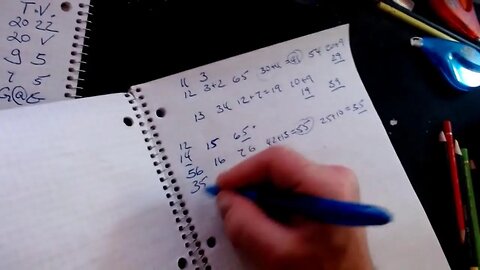 T.V.
20 22
20 V
9 5
7 5
G@G
11 3
12 3+2 65 54 20+9
19
13 34 12+7=19 20+9 39
19
12 15 65.
14 16 76 42+13=55 25+10=35
56
35